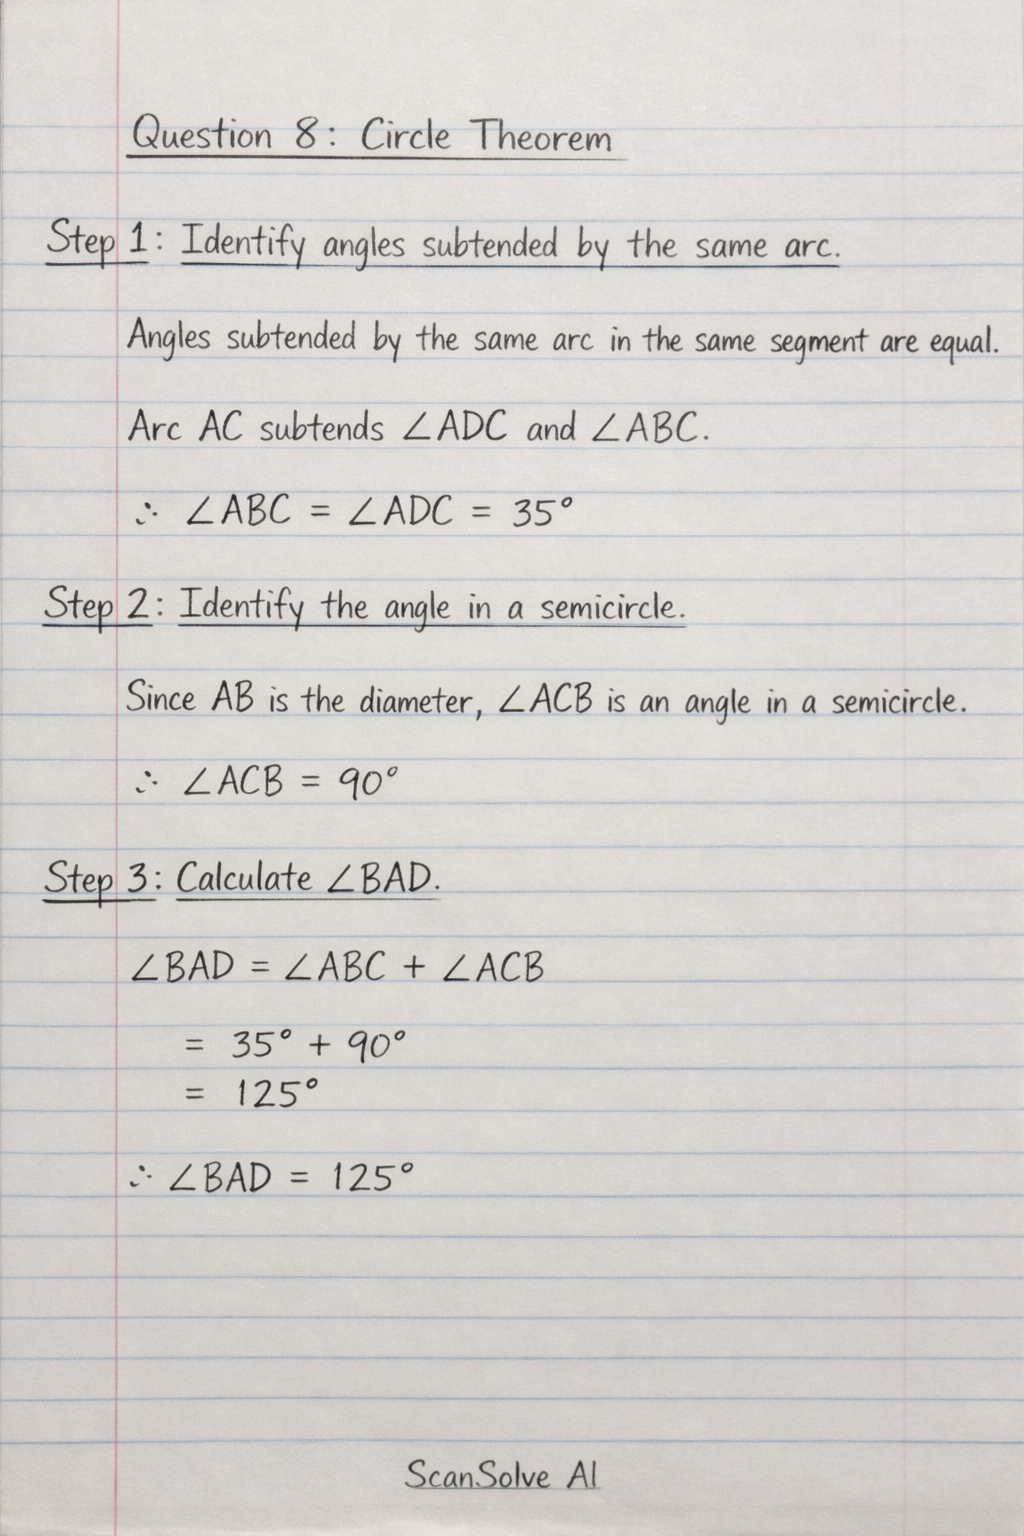 Question 8: Circle Theorem
Step 1: Identify angles subtended by the same arc.
Angles subtended by the same arc in the same segment are equal.
Arc AC subtends ∠ADC and ∠ABC.
∴ ∠ABC = ∠ADC = 35°
Step 2: Identify the angle in a semicircle.
Since AB is the diameter, ∠ACB is an angle in a semicircle.
∴ ∠ACB = 90°
Step 3: Calculate ∠BAD.
∠BAD = ∠ABC + ∠ACB
= 35° + 90°
= 125°
∴ ∠BAD = 125°
ScanSolve AI